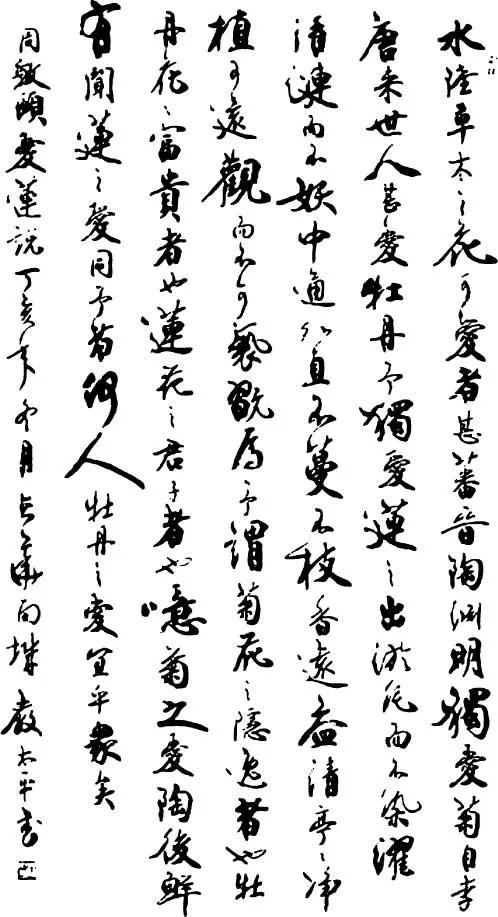 水陸草木之花可愛者甚蕃晉陶淵明獨愛菊自李
唐来世人甚愛牡丹予獨愛蓮之出淤泥而不染濯
清漣而不妖中通外直不蔓不枝香遠益清亭〻净
植可遠觀而不可褻翫焉予謂菊花之隱逸者也牡
丹花之富貴者也蓮花之君子者也噫菊之愛陶後鮮
有聞蓮之愛同予者何人牡丹之愛宜乎衆矣
周敦頤愛蓮説丁亥年冬月太平書